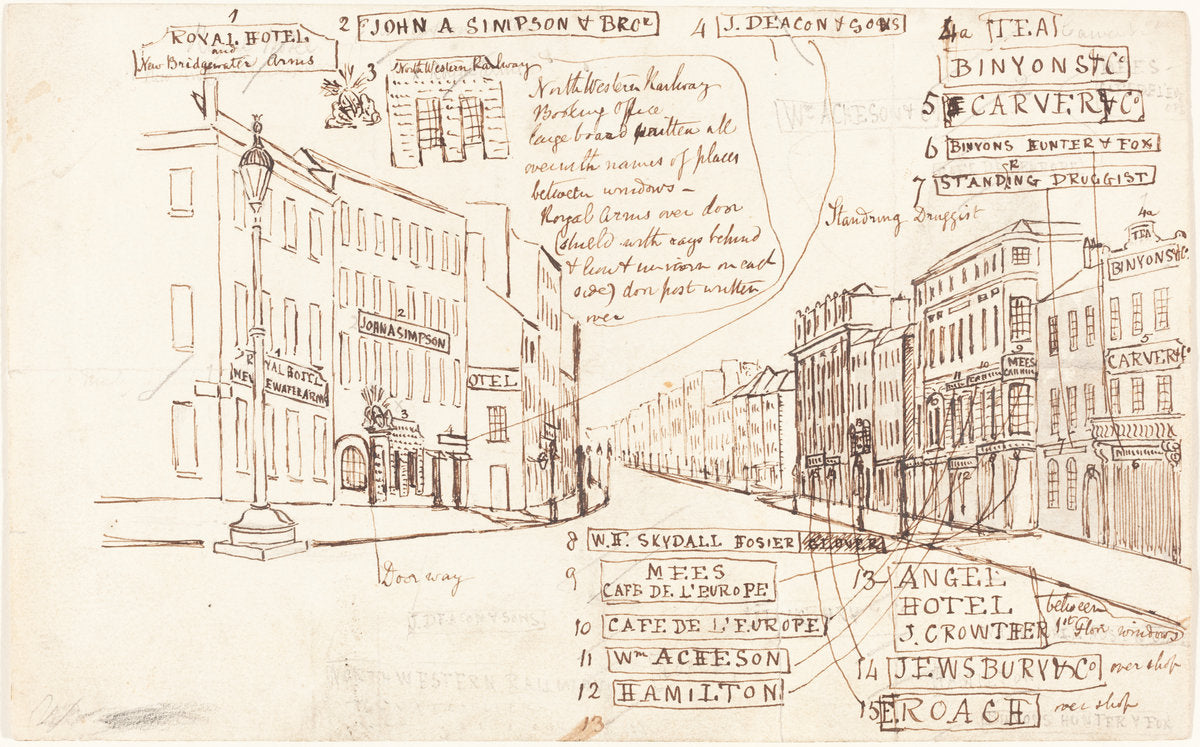 1
ROYAL HOTEL
and
New Bridgewater Arms
2 JOHN A SIMPSON & BROr
4 J. DEACON & SONS
4a TEA
BINYONS & Co
5 CARVER & Co
6 BINYONS HUNTER & FOX
7 STANDRING DRUGGIST
Standring Druggist
3
North Western Railway
North Western Railway
Booking Office
large board written all
over with names of places
between windows –
Royal Arms over door
(shield with rays behind
& lion & unicorn on each
side) door post written
over
Wm ACHESON &
2
JOHN A SIMPSON
1
ROYAL HOTEL
NEW
EWATER ARMS
OTEL
3
4
4a
TEA
BINYONS & Co
5
CARVER & Co
9
MEES
10
11
12
13
15
14
7
6
Door way
8 W.H. SKYDALL HOSIER GLOVER
9 MEES
CAFE DE L'EUROPE
10 CAFE DE L'EUROPE
11 Wm ACHESON
12 HAMILTON
13 ANGEL
HOTEL
J. CROWTHER
between
1st Floor windows
14 JEWSBURY & Co over shop
15 E ROACH over shop
J DEACON & SONS
NORTH WESTERN RAILWAY
BINYONS HUNTER & FOX
13